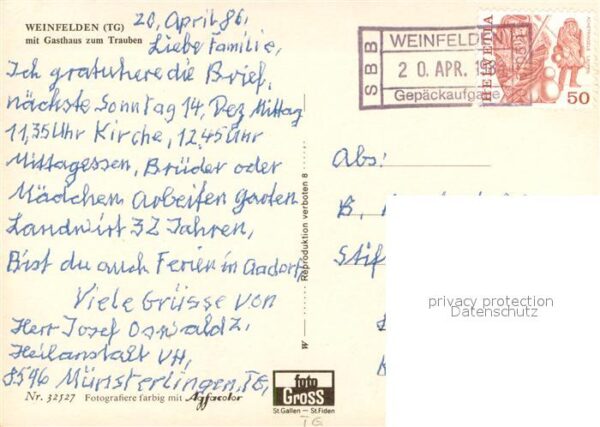 WEINFELDEN (TG)
mit Gasthaus zum Trauben
20, April 86,
Liebe Familie,
Ich gratuhere die Brief,
nächste Sonntag 14, Dez, Mittag
11,35 Uhr Kirche, 12,45 Uhr
Mittagessen, Brüder oder
Mädchem Arbeiten Garten
Landwirt 32 Jahren,
Bist du auch Ferien in Aadorf,
Viele Grüsse von
Herr Josef Oswald Z,
Heilanstalt VH,
8596 Münsterlingen, TG,
Nr. 32527 Fotografiere farbig mit Agfacolor
W — Reproduktion verboten 8
foto
GROSS
St.Gallen — St.Fiden
TG
SBB
WEINFELDEN
20. APR. 198
Gepäckaufgabe
HELVETIA
50
Abs:
B,
Stif
privacy protection
Datenschutz